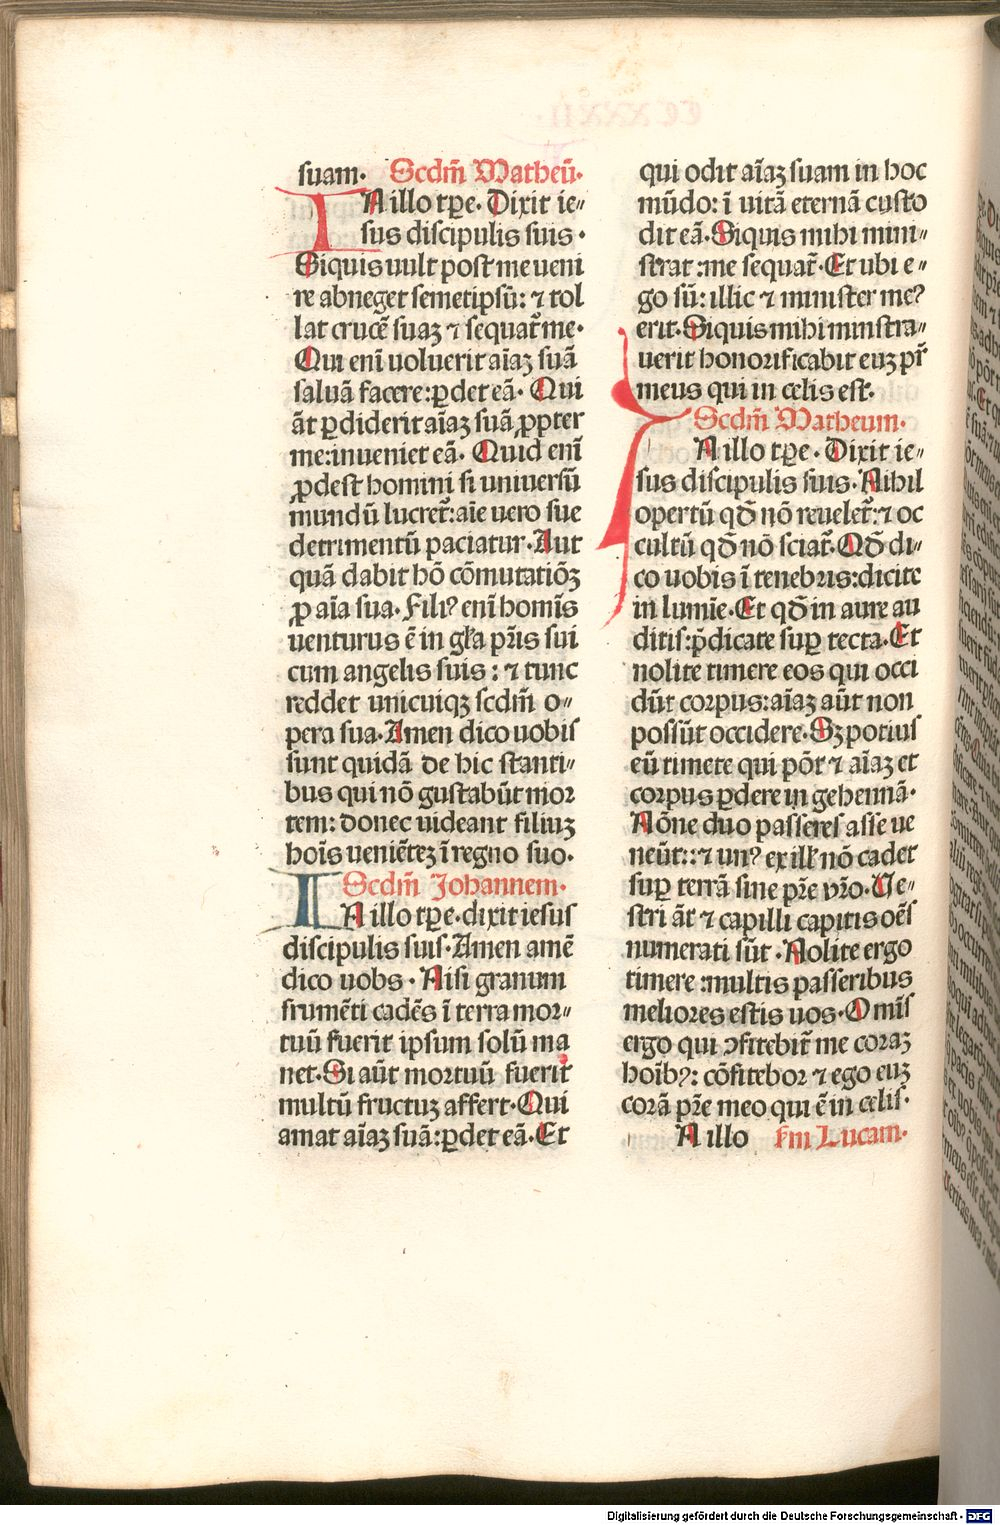 suam. Scdm̄ Matheū.
IN illo tp̄e. Dixit ie⸗
sus discipulis suis.
Siquis uult post me ueni
re abneget semetipsū: ⁊ tol
lat crucē suaꝫ ⁊ sequat᷑ me.
Qui eni᷑ uoluerit aīaꝫ suā
saluā facere: ꝑdet eā. Qui
āt ꝑdiderit aīaꝫ suā ꝓpter
me: inueniet eā. Quid enī
ꝓdest homini si uniuersū
mundū lucret᷑: aīe uero sue
detrimentū paciatur. Aut
quā dabit hō cōmutatiōꝫ
ꝓ aīa sua. Filiꝰ enī homīs
uenturus ē in gl̄a pr̄is sui
cum angelis suis: ⁊ tunc
reddet unicuiqꝫ scdm̄ o⸗
pera sua. Amen dico uobis
sunt quidā de hic stanti⸗
bus qui nō gustabūt mor
tem: donec uideant filiuꝫ
hoīs ueniētēꝫ ī regno suo.
Scdm̄ Johannem.
IN illo tp̄e. dixit iesus
discipulis suis. Amen amē
dico uobs. Nisi granum
frumēti cadēs ī terra mor⸗
tuū fuerit ipsum solū ma
net. Si aūt mortuū fuerit
multū fructuꝫ affert. Qui
amat aīaꝫ suā: ꝑdet eā. Et
qui odit aīaꝫ suam in hoc
mūdo: ī uitā eternā custo
dit eā. Siquis mihi mini⸗
strat: me sequat᷑. Et ubi e⸗
go sū: illic ⁊ minister meꝰ
erit. Siquis mihi minstra⸗
uerit honorificabit euꝫ pr̄
meus qui in celis est.
Scdm̄ Matheum.
IN illo tp̄e. Dixit ie⸗
sus discipulis suis. Nihil
opertū qd̄ nō reuelet᷑: ⁊ oc
cultū qd̄ nō sciat᷑. Qd̄ di⸗
co uobis ī tenebris: dicite
in lumīe. Et qd̄ in aure au
ditis: p̄dicate suꝑ tecta. Et
nolite timere eos qui occi
dūt corpus: aīaꝫ aūt non
possūt occidere. Sꝫ potius
eū timete qui pōt ⁊ aīaꝫ et
corpus ꝑdere in gehennā.
Nōne duo passeres asse ue
neūt: ⁊ unꝰ ex ill' nō cadet
suꝑ terrā sine pr̄e vr̄o. Ve⸗
stri āt ⁊ capilli capitis oēs
numerati sūt. Nolite ergo
timere: multis passeribus
meliores estis uos. Omīs
ergo qui ꝯfitebit᷑ me coraꝫ
hoībꝰ: cōfitebor ⁊ ego euꝫ
corā pr̄e meo qui ē in celis.
N illo fm Lucam.
Digitalisierung gefördert durch die Deutsche Forschungsgemeinschaft - DFG